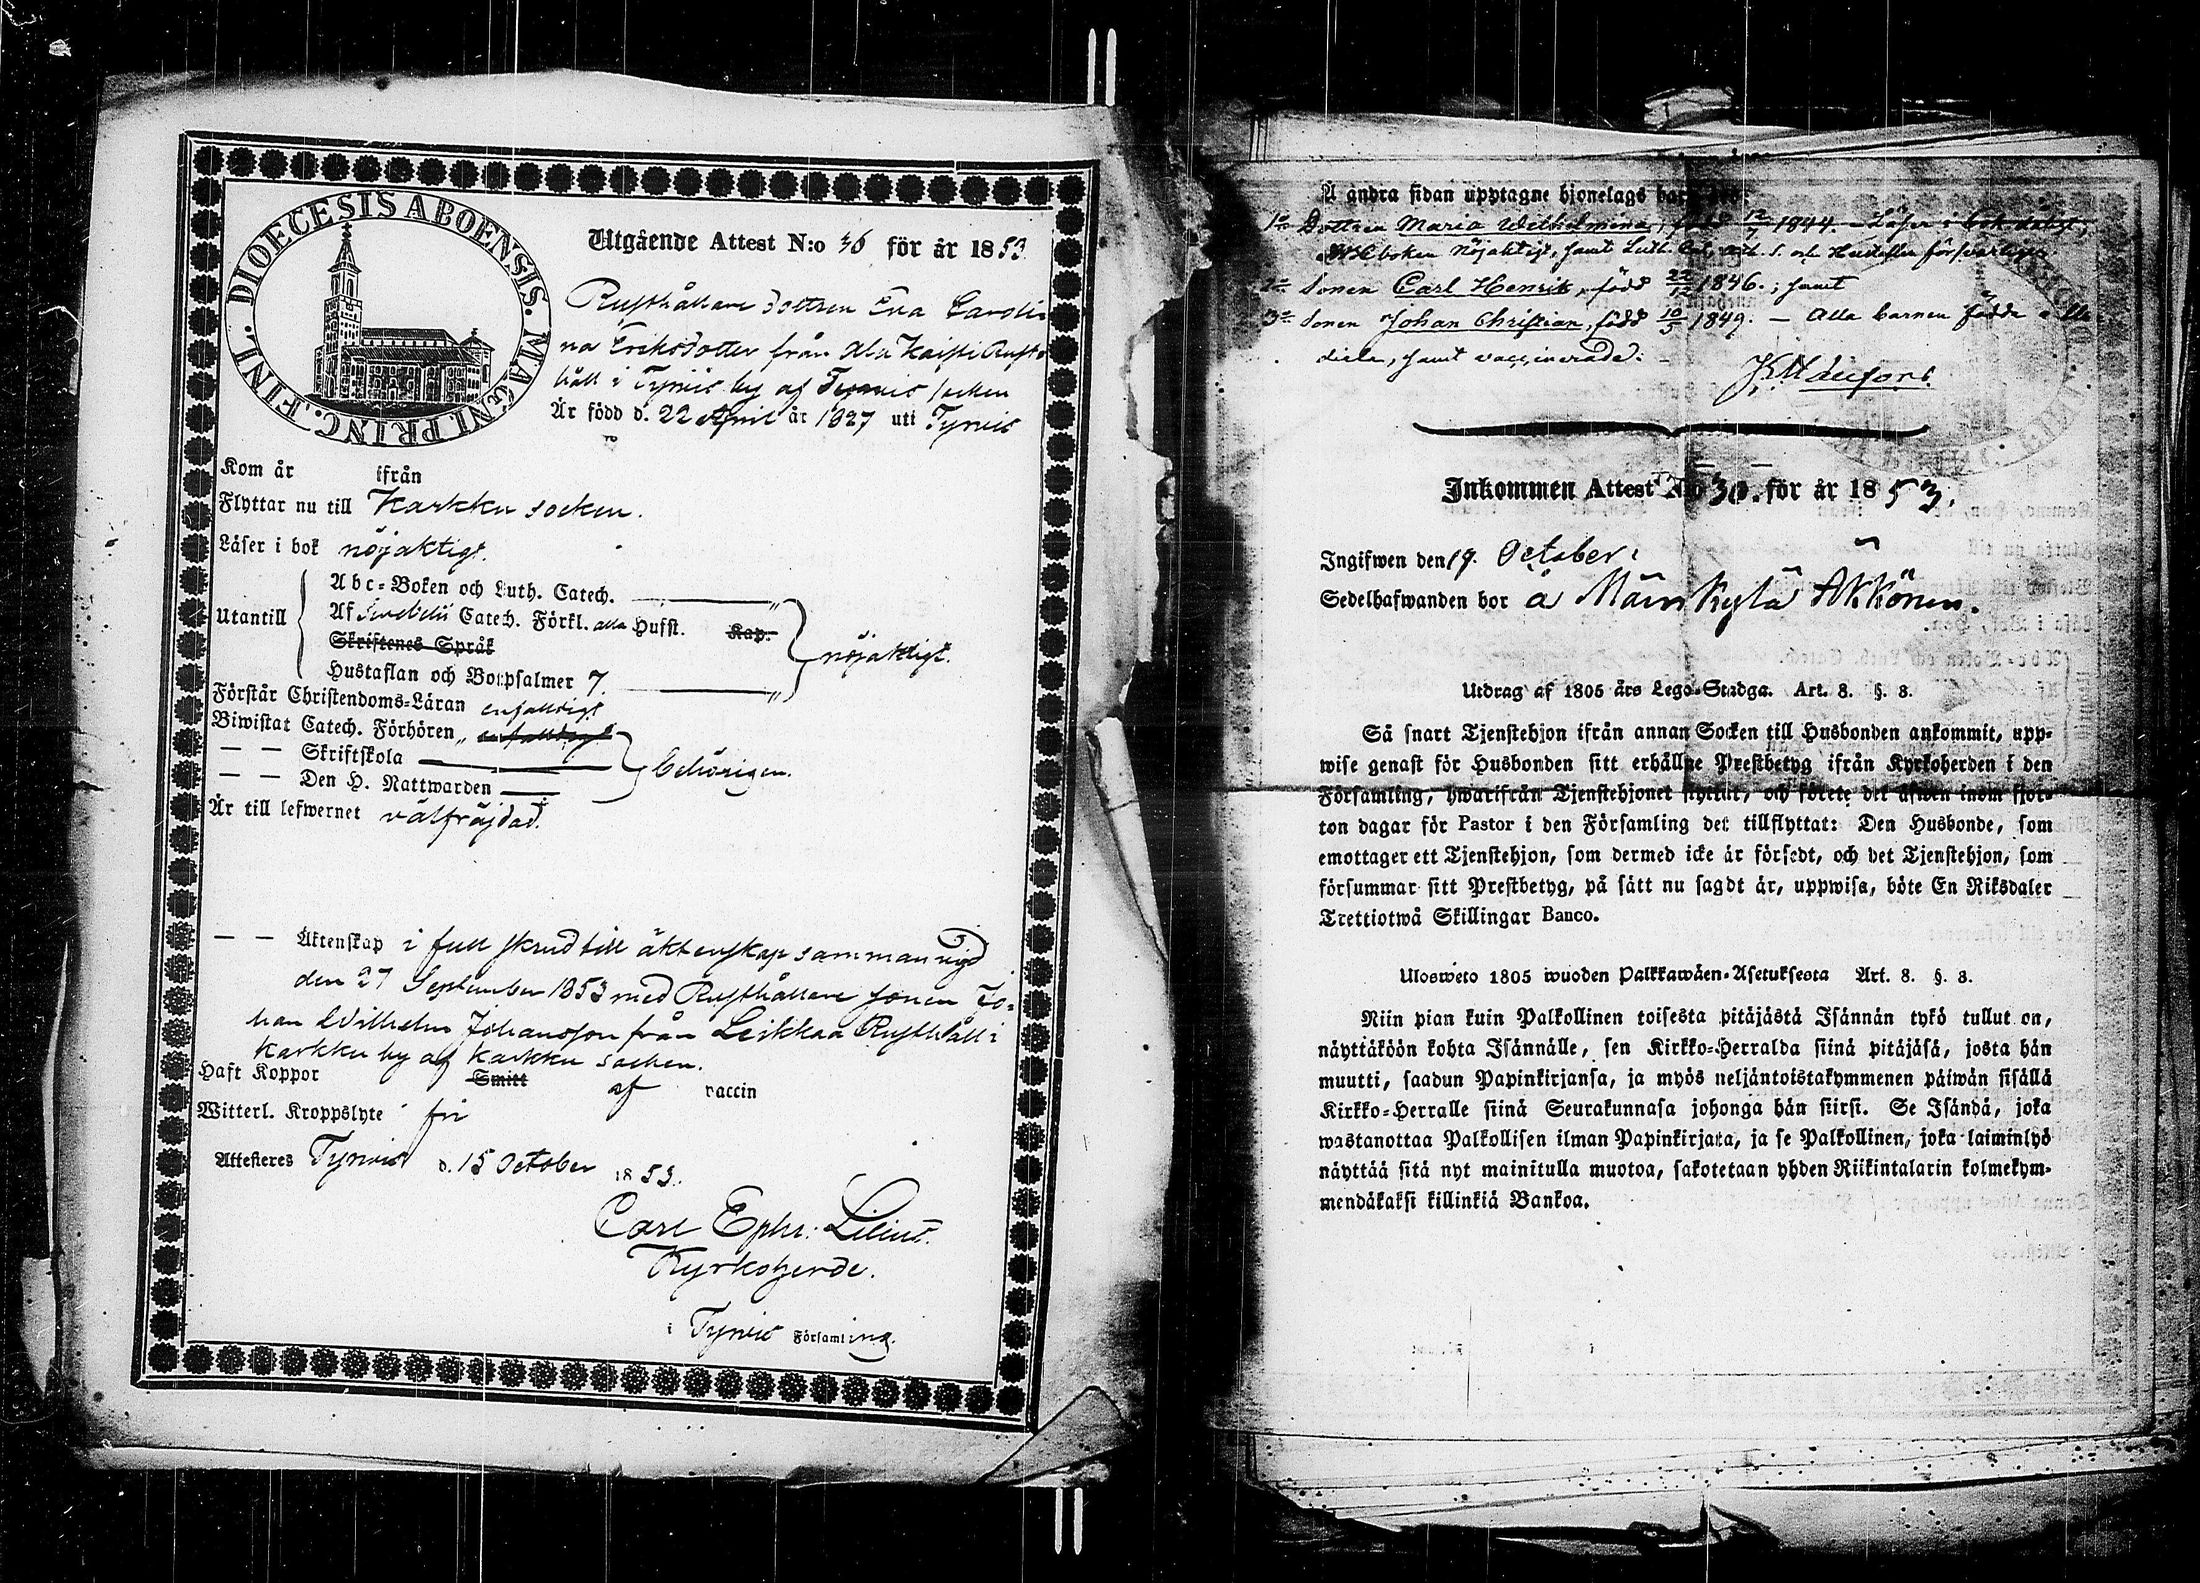 DIOECESIS ABOENSIS. MAGNI PRINC. FINL.
Utgående Attest N:o 36 för år 1853
Rusthållare dottren Eva Caroli-
na Eriksdotter från Ala Kaisti Rust-
håll i Tyrvis by af Tyrvis socken
Är född d. 22 April år 1827 uti Tyrvis
Kom år ifrån
Flyttar nu till Karkku socken.
Läser i bok nöjaktigt.
Utantill
Abc-Boken och Luth. Catech. ——— "
Af Svebelii Catech. Förkl. alla Hufst. Kap.
Skriftenes Språk
nöjaktigt.
Hustaflan och Botpsalmer 7. ——— "
Förstår Christendoms-Läran enfaldigt
Biwistat Catech. Förhören " enfaldigt
— — Skriftskola ———
behörigen.
— — Den H. Nattwarden ———
Är till lefwernet välfräjdad.
— — Äktenskap i full skrud till äktenskap sammanvigd
den 27 September 1853 med Rusthållare sonen Jo-
han Wilhelm Johansson från Leikkaa Rusthåll i
Karkku by af Karkku socken.
Haft Koppor Smitt af vaccin
Witterl. Kroppslyte fri
Attesteres Tyrvis d. 15 October 1853.
Carl Ephr: Lilius.
Kyrkoherde.
i Tyrvis Församling.
Å andra sidan upptagne hjonelags barn
1o Dottren Maria Wilhelmina, född 12/7 1844. – Läser i bok
Abcboken Nöjaktigt, samt Luth. Cat. och Hustaflan försvarligen
2o Sonen Carl Henrik, född 22/12 1846.; samt
3o Sonen Johan Christian, född 10/5 1849. — Alla barnen födde
samt vaccinerade. –
Inkommen Attest N:o 30. för år 1853.
Ingifwen den 19. October.
Sedelhafwanden bor å Mäenkylä Äkkönen.
Utdrag af 1805 års Lego-Stadga. Art. 8. §. 8.
Så snart Tjenstehjon ifrån annan Socken till Husbonden ankommit, upp-
wise genast för Husbonden sitt erhållne Prestbetyg ifrån Kyrkoherden i den
Församling, hwarifrån Tjenstehjonet flyttat, och förete det äfwen inom fjor-
ton dagar för Pastor i den Församling det tillflyttat: Den Husbonde, som
emottager ett Tjenstehjon, som dermed icke är försedt, och det Tjenstehjon, som
försummar sitt Prestbetyg, på sätt nu sagdt är, uppwisa, böte En Riksdaler
Trettiotwå Skillingar Banco.
Ulosweto 1805 wuoden Palkkawäen-Asetuksesta Art. 8. §. 8.
Niin pian kuin Palkollinen toisesta pitäjästä Isännän tykö tullut on,
näyttäköön kohta Isännälle, sen Kirkko-Herralda siinä pitäjäsä, josta hän
muutti, saadun Papinkirjansa, ja myös neljäntoistakymmenen päiwän sisällä
Kirkko-Herralle siinä Seurakunnasa johonga hän siirsi. Se Isändä, joka
wastanottaa Palkollisen ilman Papinkirjata, ja se Palkollinen, joka laiminlyö
näyttää sitä nyt mainitulla muotoa, sakotetaan yhden Riikintalarin kolmekym-
mendäkaksi killinkiä Bankoa.